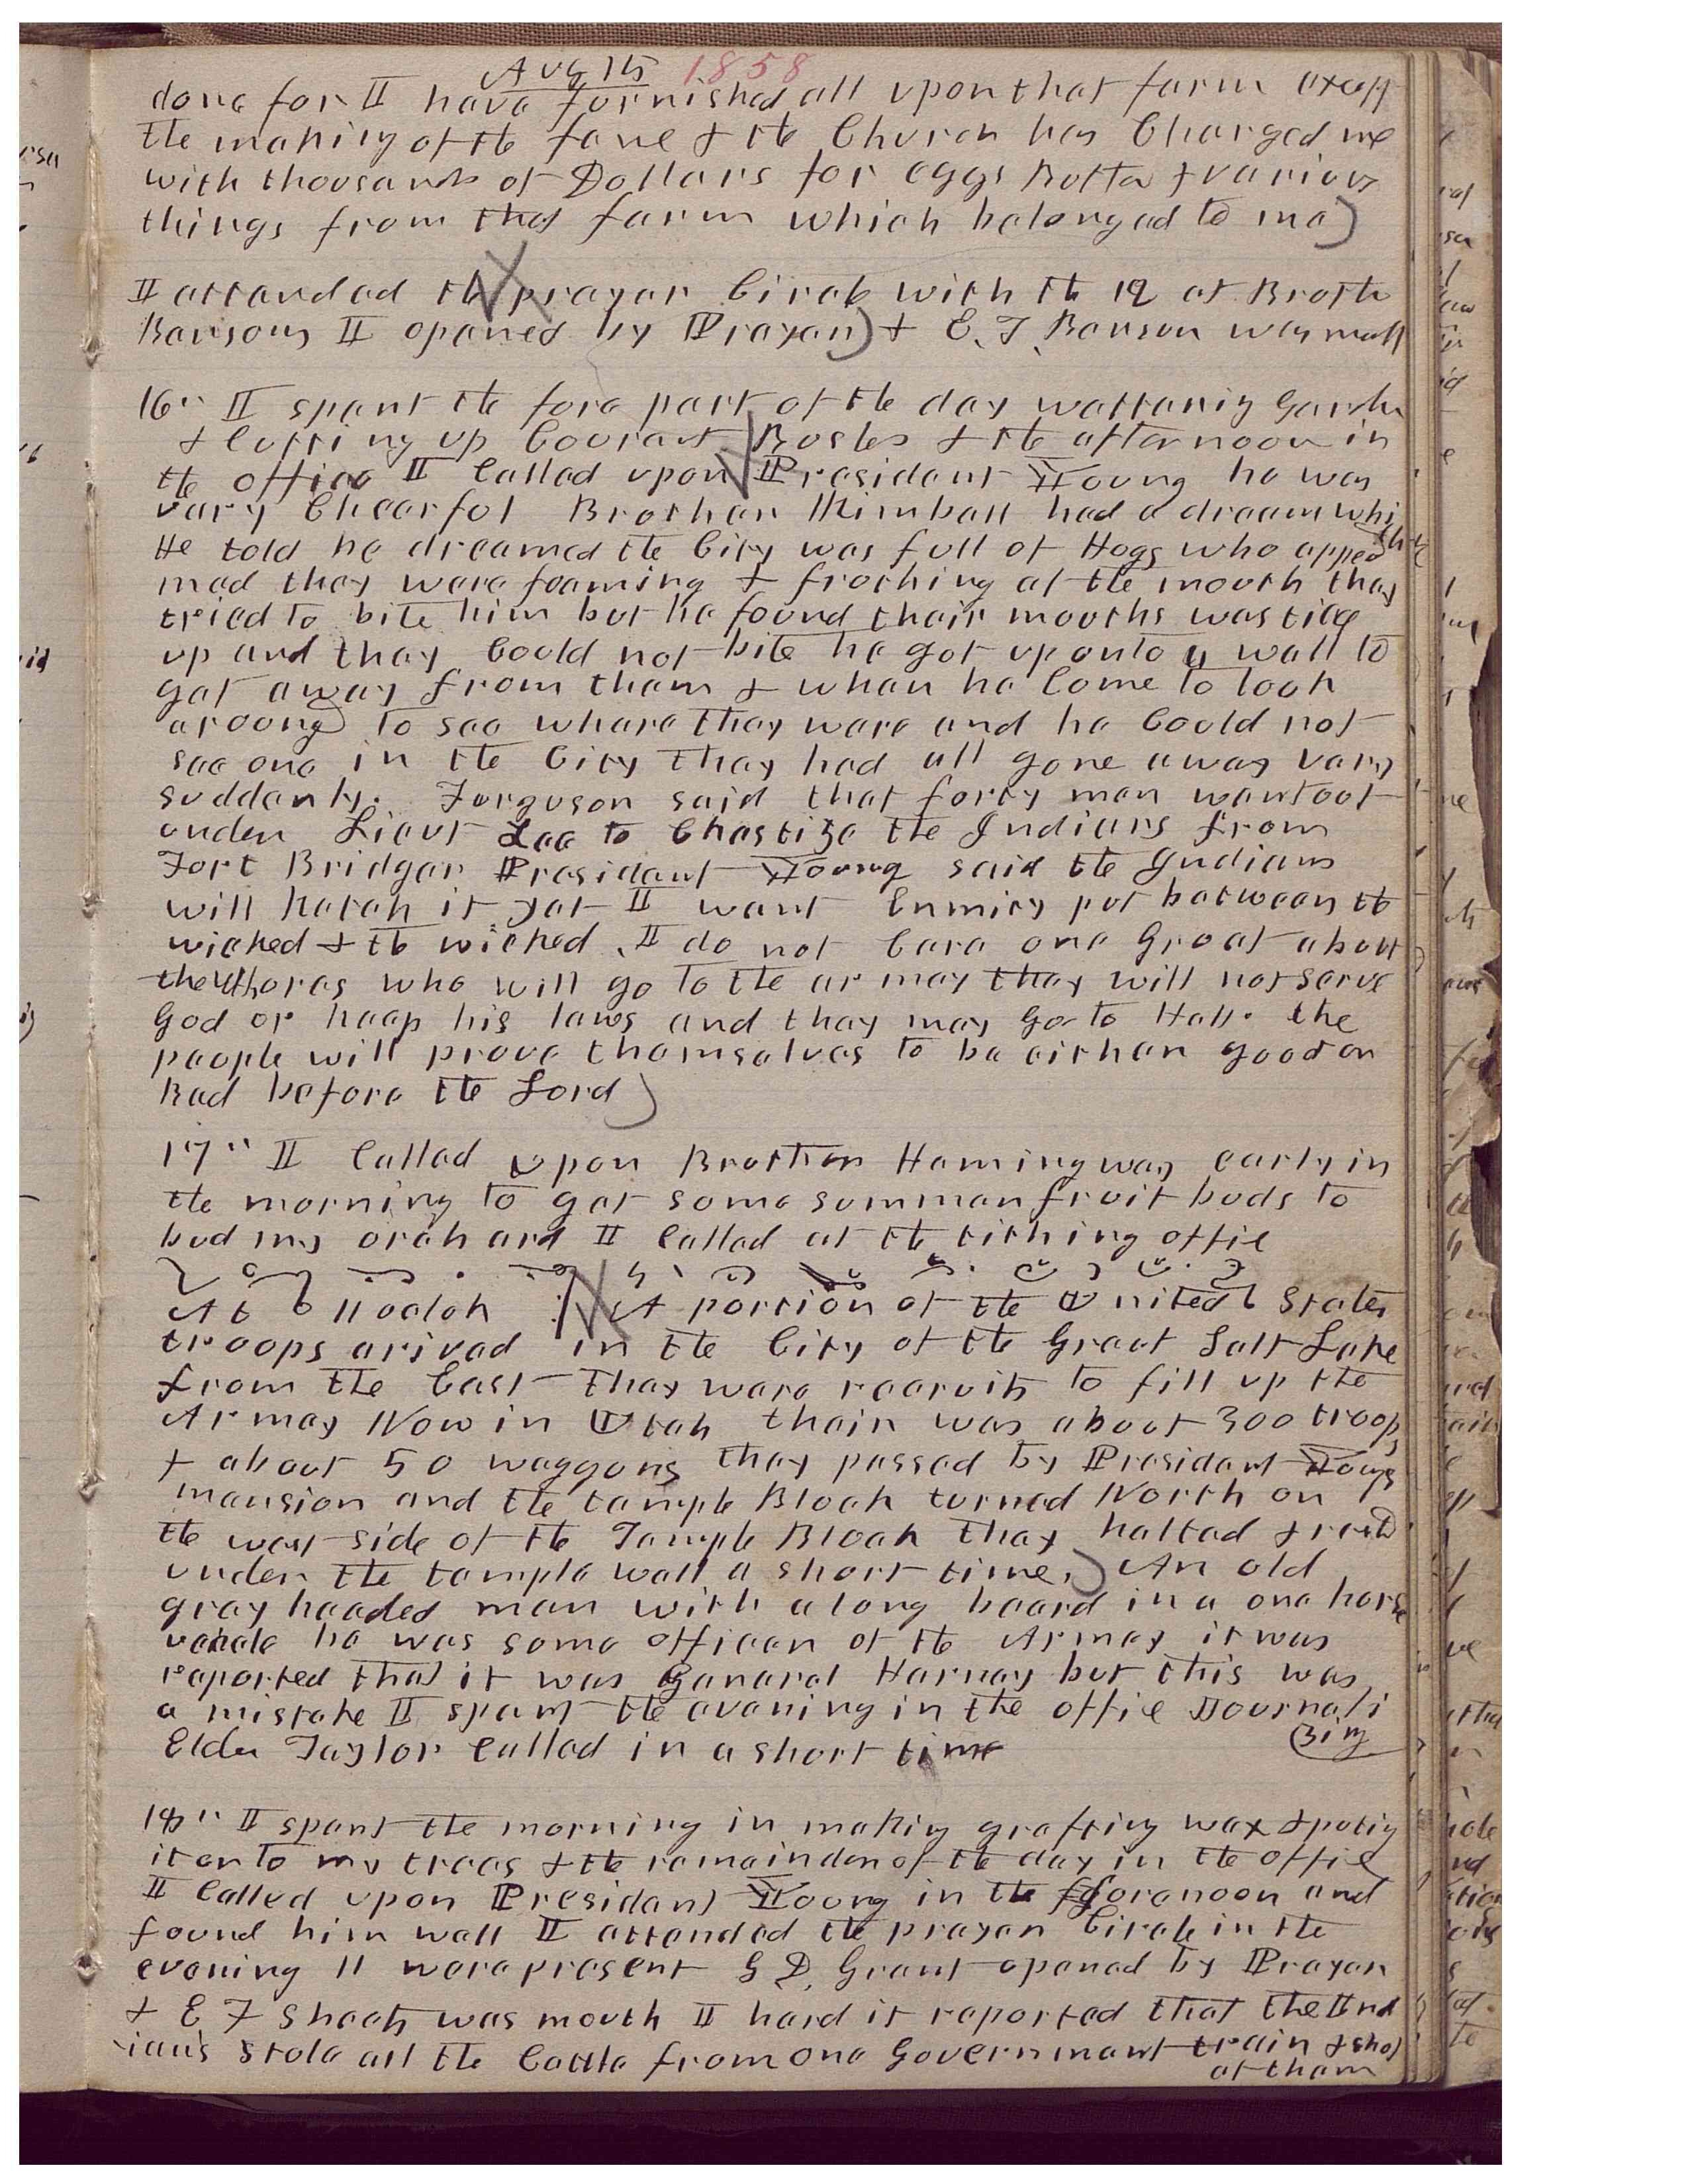 Aug 15 1858
done for I have furnished all upon that farm except
the making of the fence & the Church has Charged me
with thousands of Dollars for eggs Butter & various
things from that farm which belonged to me)
I attended the prayer Circle with the 12 at Brother
Bensons I opened by Prayer) + E. T. Benson was mouth
16" I spent the fore part of the day wattering Garden
& Cutting up Courant Bushes & the afternoon in
the office I Called upon President Young he was
very Cheerful Brother Kimball had a dream which
He told he dreamed the City was full of Hogs who appeared
mad they were foaming & frothing at the mouth they
tried to bite him but he found their mouths was tied
up and they Could not bite he got up onto a wall to
get away from them & when he Come to look
around to see where they were and he Could not
see one in the City they had all gone away very
suddenly. Ferguson said that forty men went out
under Lieut Lee to Chastize the Indians from
Fort Bridger President Young said the Indians
will ketch it yet I want Enmity put between the
wicked & the wicked. I do not Care one Groat about
the Whores who will go to the armey they will not serve
God or keep his laws and they may Go to Hell. the
people will prove themselves to be either good or
Bad before the Lord)
17" I Called upon Brother Hemingway early in
the morning to get some summer fruit buds to
bud my orchard I Called at the tithing office
At 6 oclock A portion of the United States
troops arived in the City of the Great Salt Lake
from the East they were recruits to fill up the
Armey Now in Utah their was about 300 troops
& about 50 waggons they passed by President Youngs
mansion and the temple Block turned North on
the west side of the Temple Block they halted & rested
under the temple wall a short time.) An old
gray headed man with a long beard in a one horse
vehicle he was some officer of the Armey it was
reported that it was General Harney but this was
a mistake I spent the evening in the office Journali
zing
Elder Taylor Called in a short time
18" I spent the morning in making grafting wax & puting
it on to my trees & the remainder of the day in the office
I Called upon President Young in the foronoon and
found him well I attended the prayer Circle in the
evening 11 were present G D. Grant opened by Prayer
& E F Sheets was mouth I herd it reported that the Ind
ians stole all the Cattle from one Government train & shot
at them